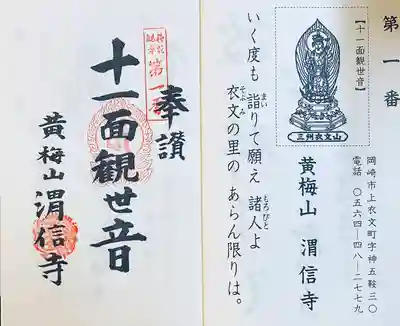 第一番
【十一面観世音】
三州衣文山
岡崎市上衣文町字神五鞍三〇
電話 〇五六四―四八―二七七九
黄梅山 渭信寺
いく度も 詣りて願え 諸人よ
まい
もろびと
衣文の里の あらん限りは。
そぶみ
奉讃
第一番
十一面観世音
黄梅山 渭信寺